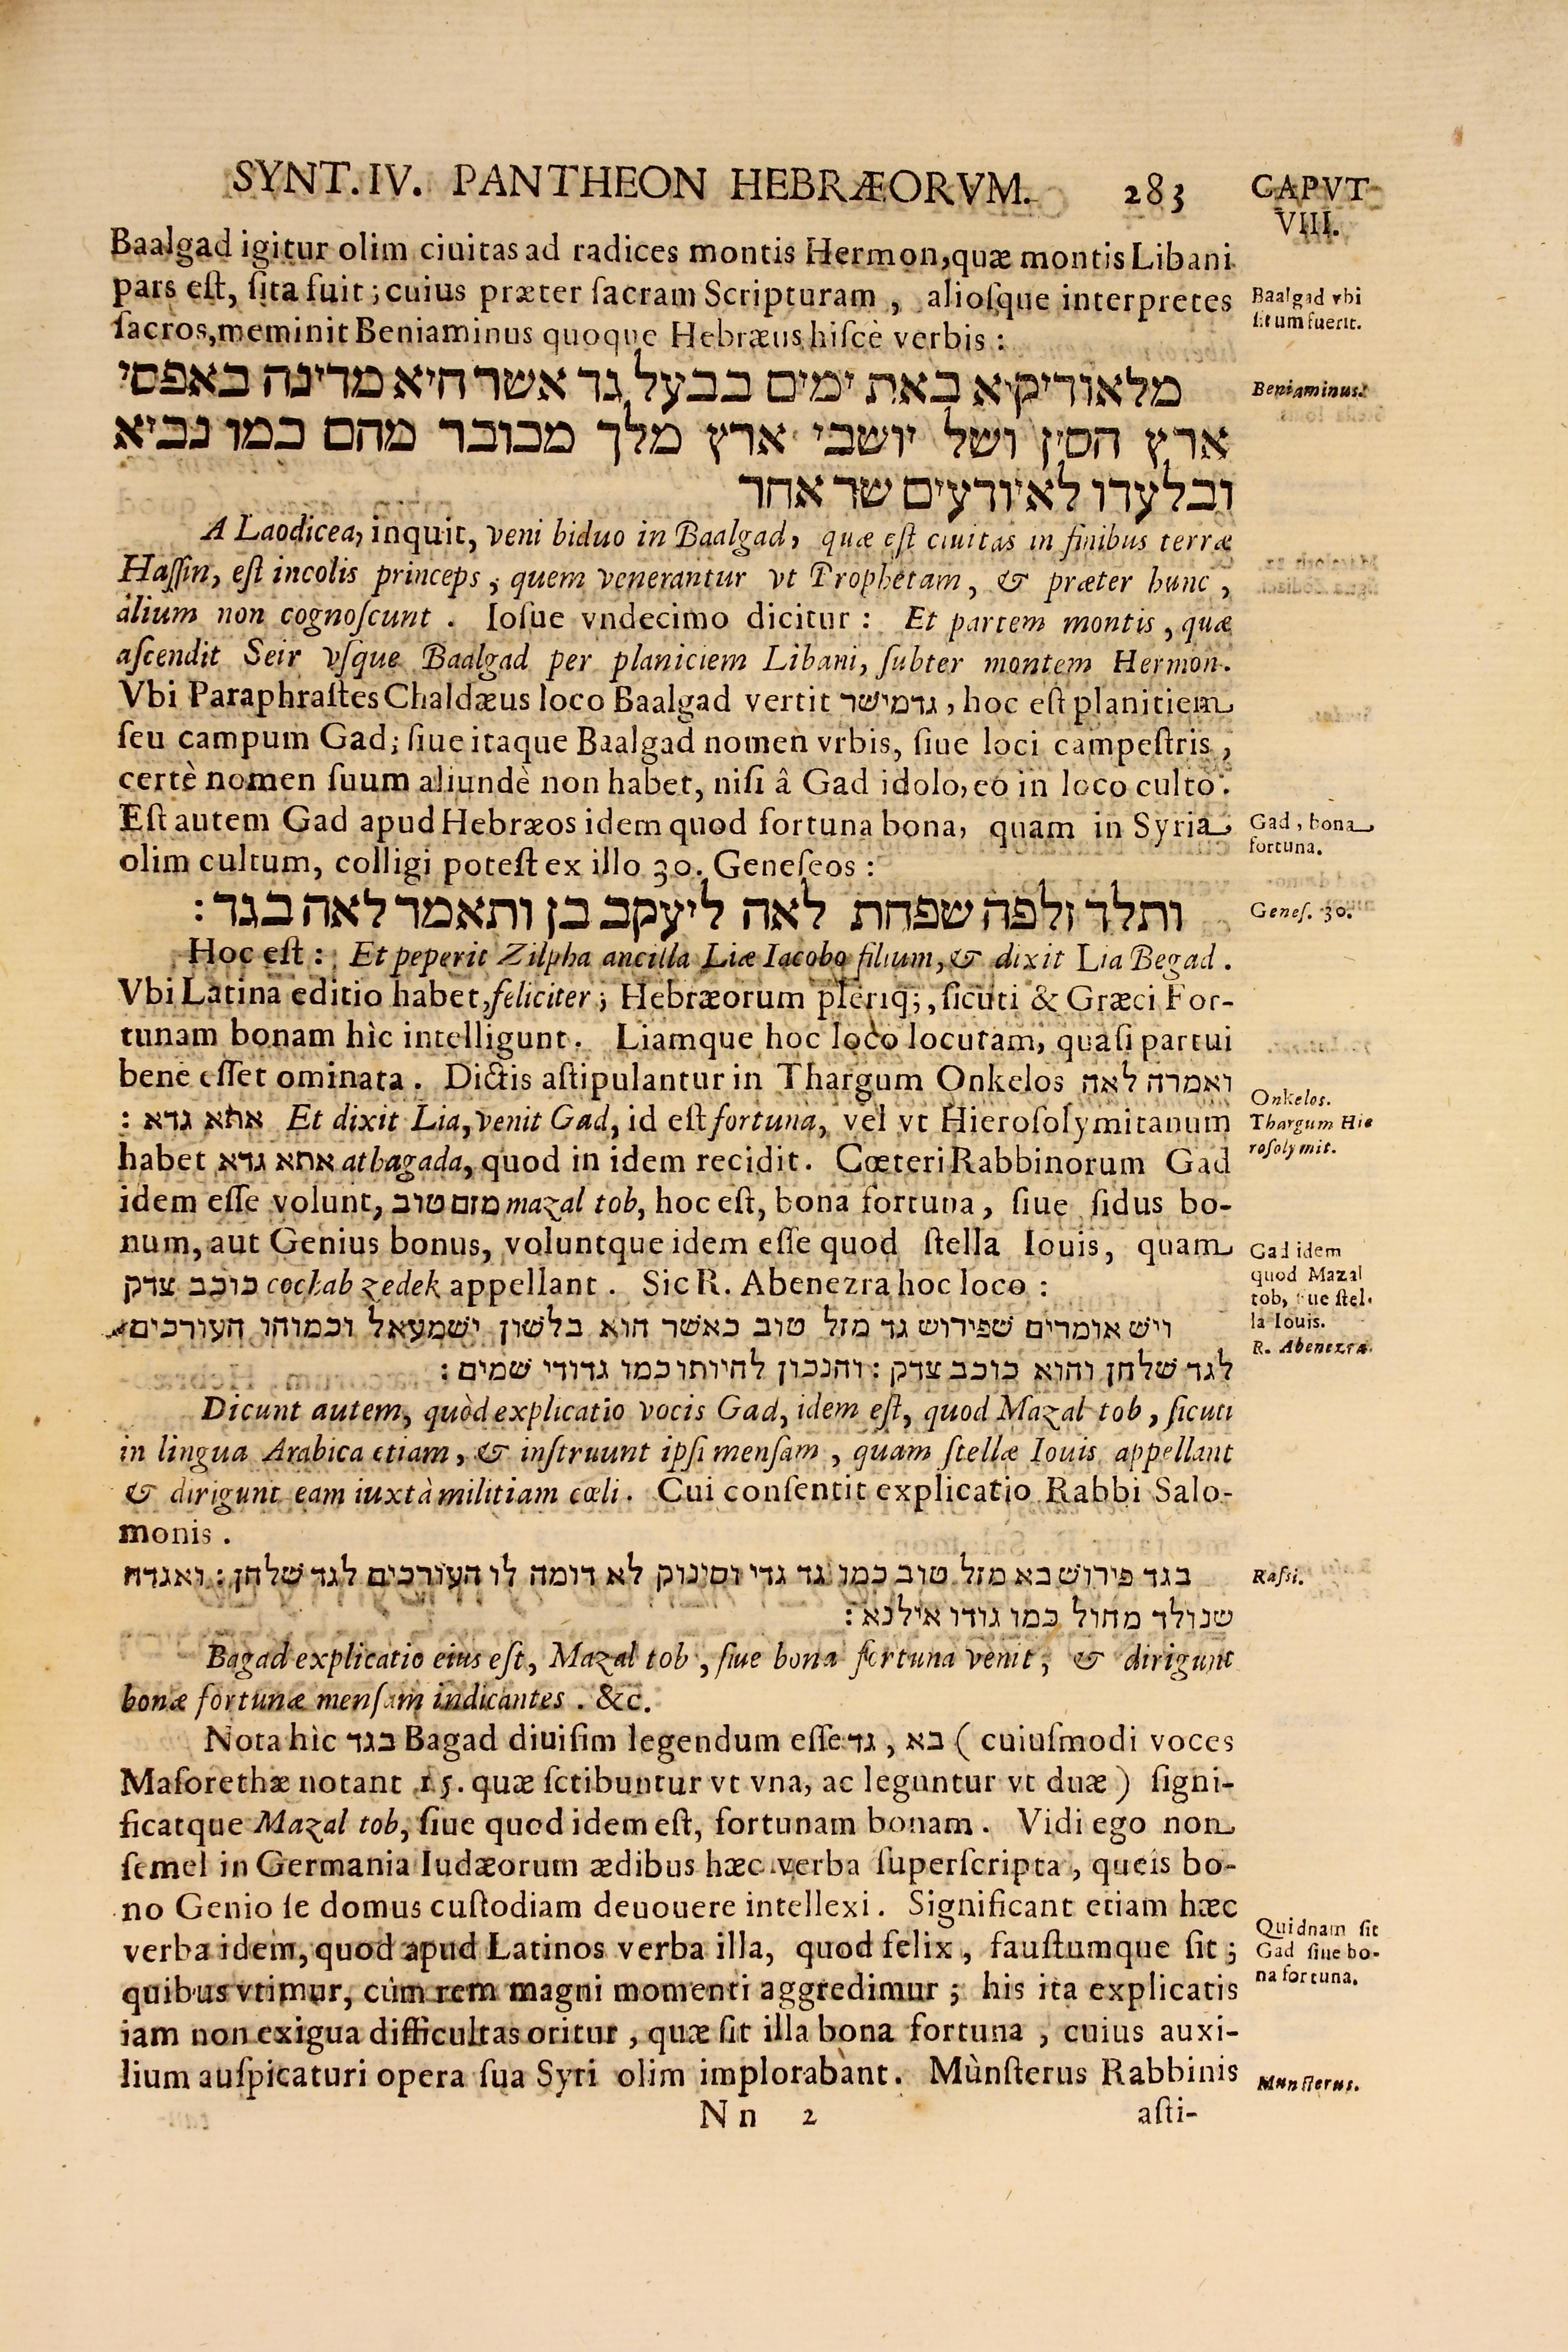 SYNT. IV. PANTHEON HEBRÆORVM. 283 CAPVT
VIII.
Baalgad igitur olim ciuitas ad radices montis Hermon, quæ montis Libani
pars eſt, ſita fuit; cuius præter ſacram Scripturam, alioſque interpretes
ſacros, meminit Beniaminus quoque Hebræus hiſcè verbis:
Baalgad vbi
ſitum fuerit.
מלאודיקיא באת ימים בבעל גד אשר היא מדינה באפסי
Beniaminus.
ארץ הסין ושל יושבי ארץ מלך מכובד מהם כמו נביא
ובלעדו לאיודעים שר אחר
A Laodicea, inquit, veni biduo in Baalgad, quæ eſt ciuitas in finibus terræ
Haſſin, eſt incolis princeps, quem venerantur vt Prophetam, & præter hunc,
alium non cognoſcunt. Ioſue vndecimo dicitur: Et partem montis, quæ
aſcendit Seir vſque Baalgad per planiciem Libani, ſubter montem Hermon.
Vbi Paraphraſtes Chaldæus loco Baalgad vertit גדמישר, hoc eſt planitiem
ſeu campum Gad; ſiue itaque Baalgad nomen vrbis, ſiue loci campeſtris,
certè nomen ſuum aliundè non habet, niſi â Gad idolo, eo in loco culto.
Eſt autem Gad apud Hebræos idem quod fortuna bona, quam in Syria
olim cultum, colligi poteſt ex illo 30. Geneſeos:
Gad, bona
fortuna.
ותלד זלפה שפחת לאה ליעקב בן ותאמר לאה בגד:
Geneſ. 30.
Hoc eſt: Et peperit Zilpha ancilla Liæ Iacobo filium, & dixit Lia Begad.
Vbi Latina editio habet, feliciter; Hebræorum pleriq;, ſicuti & Græci For-
tunam bonam hìc intelligunt. Liamque hoc loco locutam, quaſi partui
bene eſſet ominata. Dictis aſtipulantur in Thargum Onkelos ואמרה לאה
אתא גדא: Et dixit Lia, venit Gad, id eſt fortuna, vel vt Hieroſolymitanum
habet אתא גדא athagada, quod in idem recidit. Cœteri Rabbinorum Gad
idem eſſe volunt, מזם טוב mazal tob, hoc eſt, bona fortuna, ſiue ſidus bo-
num, aut Genius bonus, voluntque idem eſſe quod ſtella Iouis, quam
כוכב צדק cochab zedek appellant. Sic R. Abenezra hoc loco:
Onkelos.
Thargum Hie
roſolymit.
Gad idem
quod Mazal
tob, ſiue ſtel-
la Iouis.
R. Abenezra.
ויש אומרים שפירוש גד מזל טוב כאשר הוא בלשון ישמעאל וכמוהו העורכים
לגד שלחן והוא כוכב צדק: והנכון להיותו כמו גדודי שמים:
Dicunt autem, quòd explicatio vocis Gad, idem eſt, quod Mazal tob, ſicuti
in lingua Arabica etiam, & inſtruunt ipſi menſam, quam ſtellæ Iouis appellant
& dirigunt eam iuxtà militiam cœli. Cui conſentit explicatio Rabbi Salo-
monis.
בגד פירוש בא מזל טוב כמו גד גדי וסינוק לא דומה לו העורכים לגד שלחן: ואגדה
Raſsi.
שנולד מחול כמו גודו אילנא:
Bagad explicatio eius eſt, Mazal tob, ſiue bona fortuna venit, & dirigunt
bonæ fortunæ menſam indicantes. &c.
Nota hìc בגד Bagad diuiſim legendum eſſe גד, בא (cuiuſmodi voces
Maſorethæ notant 15. quæ ſctibuntur vt vna, ac leguntur vt duæ) ſigni-
ficatque Mazal tob, ſiue quod idem eſt, fortunam bonam. Vidi ego non
ſemel in Germania Iudæorum ædibus hæc verba ſuperſcripta, queis bo-
no Genio ſe domus cuſtodiam deuouere intellexi. Significant etiam hæc
verba idem, quod apud Latinos verba illa, quod felix, fauſtumque ſit;
quibus vtimur, cùm rem magni momenti aggredimur; his ita explicatis
iam non exigua difficultas oritur, quæ ſit illa bona fortuna, cuius auxi-
lium auſpicaturi opera ſua Syri olim implorabànt. Mùnſterus Rabbinis
Quidnam ſit
Gad ſiue bo-
na fortuna.
Munſterus.
Nn 2 aſti-